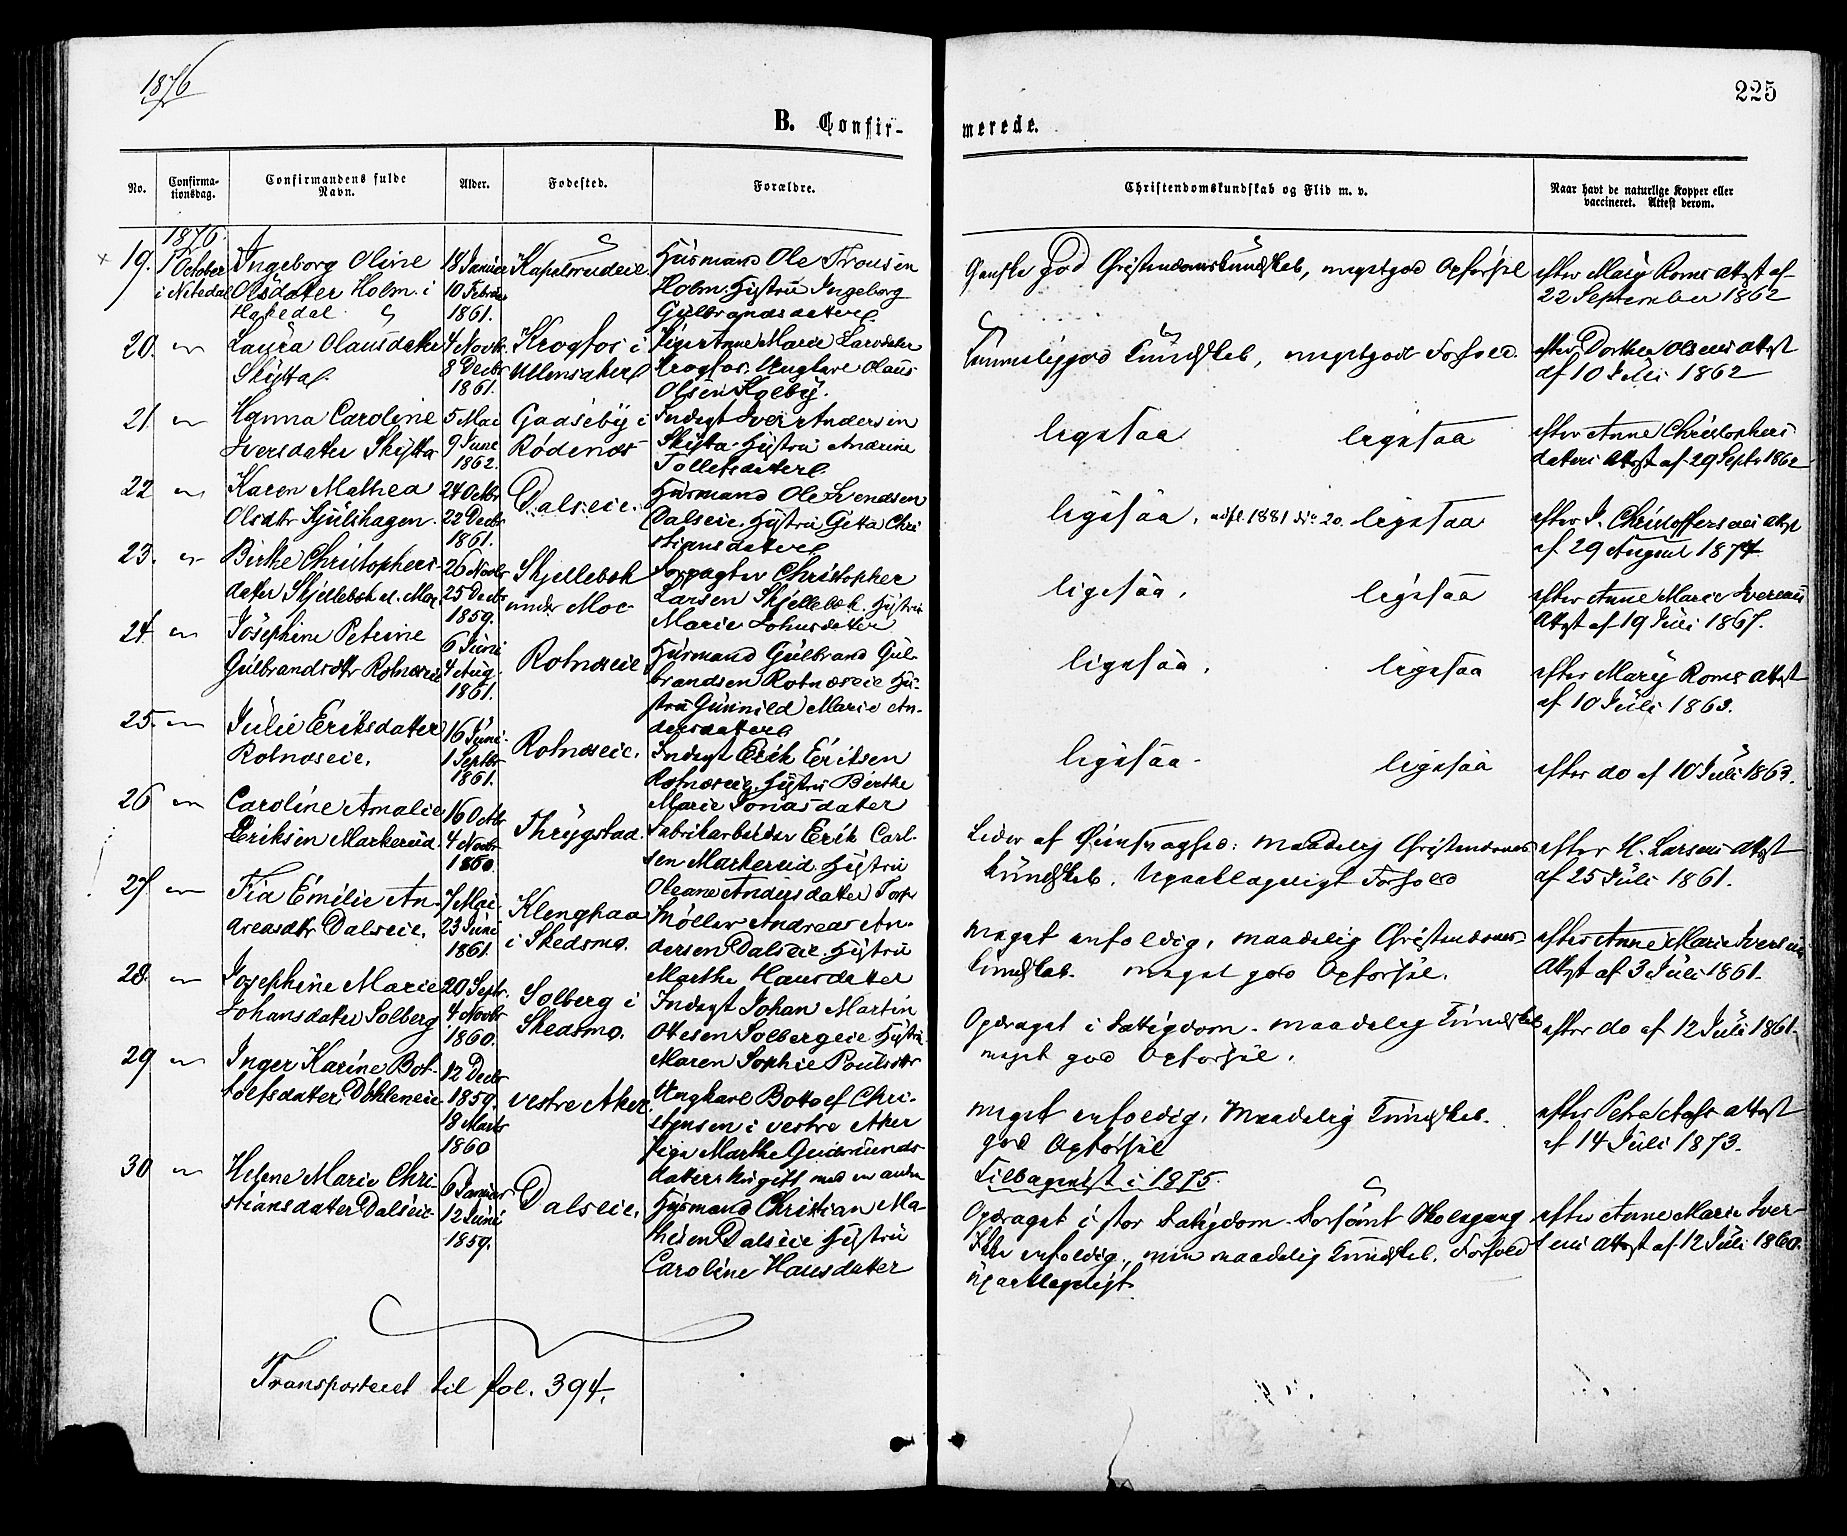 1876
225
B. Confir-
merede.
No.
Confirma-
tionsdag.
Confirmandens fulde
Navn.
Alder.
Fødested.
Forældre.
Christendomskundskab og Flid m. v.
Naar havt de naturlige Kopper eller
vaccineret. Attest derom.
1876.
19.
1 October
i Nitedal
Ingeborg Oline
Olsdatter Holm i
Hakedal
18 Januar
10 Februar
1861.
Husmand Ole
Holm. Hustru Ingeborg
Gulbrandsdatter
Ganske god Christendomskundskab, meget god Opførsel
efter Mary Roms Attest af
22 September 1862
20.
Laura Olausdatter
Skytta
4 Novbr
8 Decbr
1861.
Krogfos i
Ullensaker
Pige Anne Marie Larsdatter
Krogfos. Ungkarl Olaus
Olsen Kolby.
Temmelig god Kundskab, meget godt Forhold.
efter Dorthea Olsens Attest
af 10 Juli 1862
21
Hanna Caroline
Iversdatter Skytta
5 Mai
9 Juni
1862.
Gaaseby i
Rødenæs
Inderst Iver Andersen
Skytta. Hustru Andrine
Tollefsdatter
ligesaa
ligesaa
efter Anne Christophers
datters Attest af 29 Septr 1862
22
Karen Mathea
Olsdtr Kjulshagen.
24 Octbr
22 Decbr
1861.
Dalseie.
Husmand Ole Svendsen
Dalseie. Hustru Chri
stiansdatter
ligesaa, 1881 No 20.
ligesaa
efter J. Christoffersens Attest
af 29 August 1874
23.
Birthe Christophers-
datter Skjellebæk u. Moe.
26 Novbr
25 Decbr
1859.
Skjellebæk
under Moe
Forpagter Christopher
Larsen Skjellebæk. Hustru
Marie Johnsdatter
ligesaa.
ligesaa
efter Anne Marie Iversens
Attest af 19 Juli 1867.
24.
Josephine Petrine
Gulbrandsdtr Rotnæseie
6 Juni
4 Aug.
1861.
Rotnæseie
Husmand Gulbrand Gul-
brandsen Rotnæseie Hu-
stru Gunnild Marie An-
dersdatter
ligesaa.
ligesaa
efter Mary Roms Attest
af 10 Juli 1863.
25.
Julie Eriksdatter
Rotnæseie.
16 Juni
1 Septbr
1861.
Rotnæseie.
Inderst Erik Eriksen
Rotnæseie. Hustru Birthe
Marie Jonasdatter
ligesaa.
ligesaa
efter do af 10 Juli 1863.
26
Caroline Amalie
Eriksen Markerud.
16 Octbr
4 Novbr
1860.
Thrygstad.
Fabrikarbeider Erik Carl-
sen Markerud. Hustru
Oleane Andersdatter
Lider af maadelig Christendoms
kundskab. Upaaklageligt Forhold
efter H. Larsens Attest
af 25 Juli 1861.
27
Fia Emilie An-
dreasdtr Dalseie.
7 Mai
23 Juni
1861.
Klenghaa
i Skedsmo.
Møller Andreas An-
dersen Dalseie. Hustru
Marthe Hansdatter
meget enfoldig. maadelig Christendoms-
kundskab. meget god Opførsel.
efter Anne Marie Iversens
Attest af 3 Juli 1861.
28.
Josephine Marie
Johansdatter Solberg
20 Septr.
4 Novbr
1860.
Solberg i
Skedsmo.
Inderst Johan Martin
Olesen Solbergeie. Hustru
Maren Sophie Poulsdtr
Opdraget i Fattigdom. maadelig Kundskab
meget god Opførsel.
efter do af 12 Juli 1861.
29
Inger Karine Bot-
tolfsdatter Døhleneie
12 Decbr
1859.
18 Marts
1860
vestre Aker
Ungkarl Bottolf Chri-
stensen i vestre Aker
Pige Marthe Gudmunds-
datter gift med en anden
meget enfoldig. Maadelig Kundskab.
god Opførsel
efter Petra Attest
af 14 Juli 1873.
30
Helene Marie Chri-
stiansdatter Dalseie
6 Januar
12 Juni
1859.
Dalseie.
Husmand Christian Ma-
thisen Dalseie Hustru
Caroline Hansdatter
Tilbagevist i 1875.
Opdraget i stor Fattigdom. Forsømt Skolegang
enfoldig, men maadelig Kundskab. Forhold
upaaklageligt.
efter Anne Marie Iver-
sens Attest af 12 Juli 1860.
Transporteret til fol. 394.